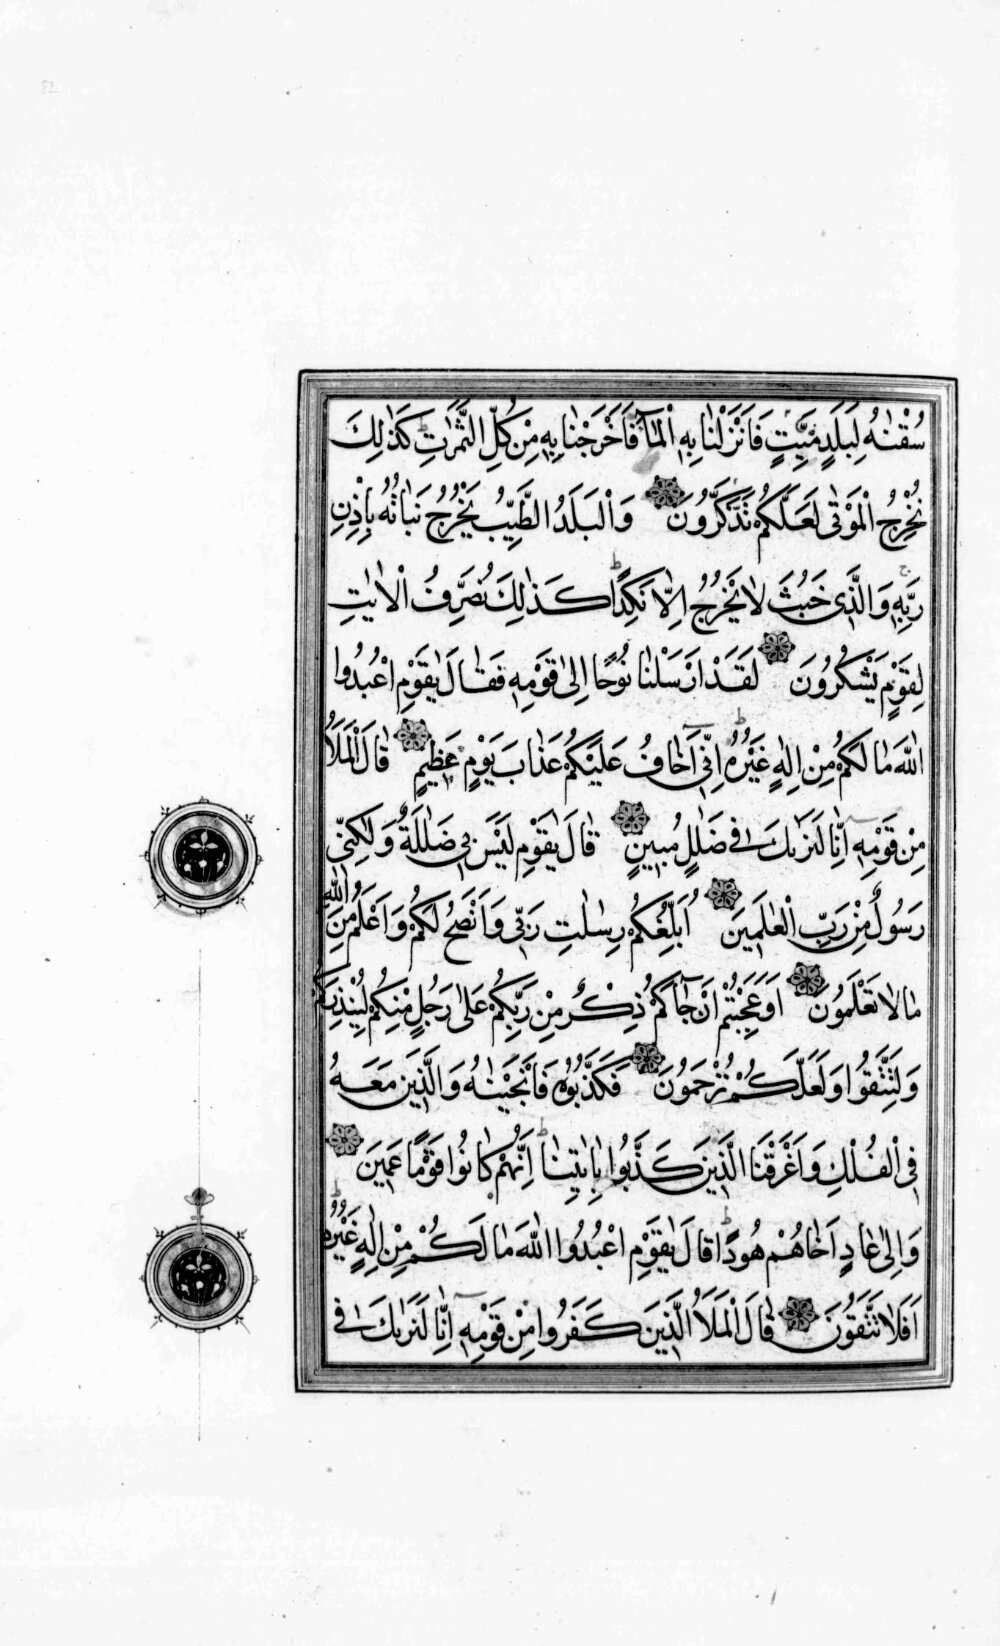 سُقْنٰهُ لِبَلَدٍ مَيِّتٍ فَاَنْزَلْنٰا بِهِ الْمٰٓاءَ فَاَخْرَجْنٰا بِهِ مِنْ كُلِّ الثَّمَرٰاتِ كَذٰلِكَ
نُخْرِجُ الْمَوْتٰى لَعَلَّكُمْ تَذَكَّرُونَ وَالْبَلَدُ الطَّيِّبُ يَخْرُجُ نَبٰاتُهُ بِاِذْنِ
رَبِّهِ وَالَّذِى خَبُثَ لاٰ يَخْرُجُ اِلاّٰ نَكِدًا كَذٰلِكَ نُصَرِّفُ الْاٰيٰتِ
لِقَوْمٍ يَشْكُرُونَ لَقَدْ اَرْسَلْنٰا نُوحًا اِلٰى قَوْمِهِ فَقٰالَ يٰقَوْمِ اعْبُدُوا
اللّٰهَ مٰا لَكُمْ مِنْ اِلٰهٍ غَيْرُهُ اِنِّىٓ اَخٰافُ عَلَيْكُمْ عَذٰابَ يَوْمٍ عَظِيمٍ قٰالَ الْمَلَاُ
مِنْ قَوْمِهِ اِنّٰا لَنَرٰىكَ فِى ضَلٰلٍ مُبِينٍ قٰالَ يٰقَوْمِ لَيْسَ بِى ضَلٰلَةٌ وَلٰكِنِّى
رَسُولٌ مِنْ رَبِّ الْعٰلَمِينَ اُبَلِّغُكُمْ رِسٰلٰتِ رَبِّى وَاَنْصَحُ لَكُمْ وَاَعْلَمُ مِنَ اللّٰهِ
مٰا لاٰ تَعْلَمُونَ اَوَعَجِبْتُمْ اَنْ جٰٓاءَكُمْ ذِكْرٌ مِنْ رَبِّكُمْ عَلٰى رَجُلٍ مِنْكُمْ لِيُنْذِرَكُمْ
وَلِتَتَّقُوا وَلَعَلَّكُمْ تُرْحَمُونَ فَكَذَّبُوهُ فَاَنْجَيْنٰهُ وَالَّذِينَ مَعَهُ
فِى الْفُلْكِ وَاَغْرَقْنَا الَّذِينَ كَذَّبُوا بِاٰيٰتِنٰا اِنَّهُمْ كٰانُوا قَوْمًا عَمِينَ
وَاِلٰى عٰادٍ اَخٰاهُمْ هُودًا قٰالَ يٰقَوْمِ اعْبُدُوا اللّٰهَ مٰا لَكُمْ مِنْ اِلٰهٍ غَيْرُهُ
اَفَلاٰ تَتَّقُونَ قٰالَ الْمَلَاُ الَّذِينَ كَفَرُوا مِنْ قَوْمِهِ اِنّٰا لَنَرٰىكَ فِى